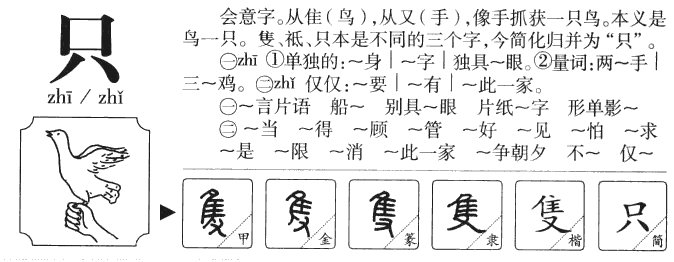 只
zhī / zhǐ
会意字。从隹(鸟),从又(手),像手抓获一只鸟。本义是
鸟一只。隻、祇、只本是不同的三个字,今简化归并为“只”。
㊀zhī ①单独的:~身|~字|独具~眼。②量词:两~手|
三~鸡。㊁zhǐ 仅仅:~要|~有|~此一家。
㊀~言片语 船~ 别具~眼 片纸~字 形单影~
㊁~当 ~得 ~顾 ~管 ~好 ~见 ~怕 ~求
~是 ~限 ~消 ~此一家 ~争朝夕 不~ 仅~
隻 甲
隻 金
隻 篆
隻 隶
隻 楷
只 简